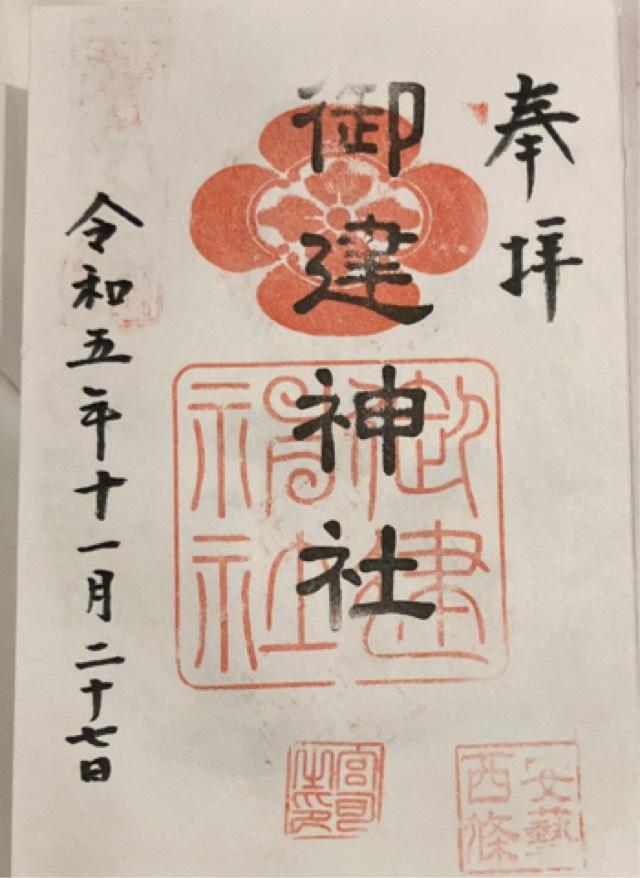 奉拝
御建神社
御建
神社
令和五年十一月二十七日
安藝
西條
宮司
之印